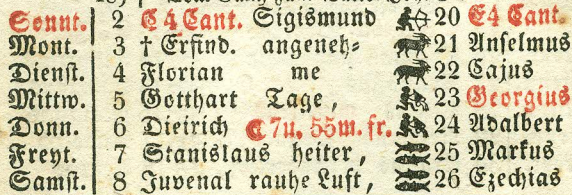 Sonnt. 2 E 4 Cant. Sigismund 20 E4 Cant.
Mont. 3 † Erfind. angeneh= 21 Anselmus
Dienst. 4 Florian me 22 Cajus
Mittw. 5 Gotthart Tage, 23 Georgius
Donn. 6 Dieirich 7u. 55m. fr. 24 Adalbert
Freyt. 7 Stanislaus heiter, 25 Markus
Samst. 8 Juvenal rauhe Luft, 26 Ezechias